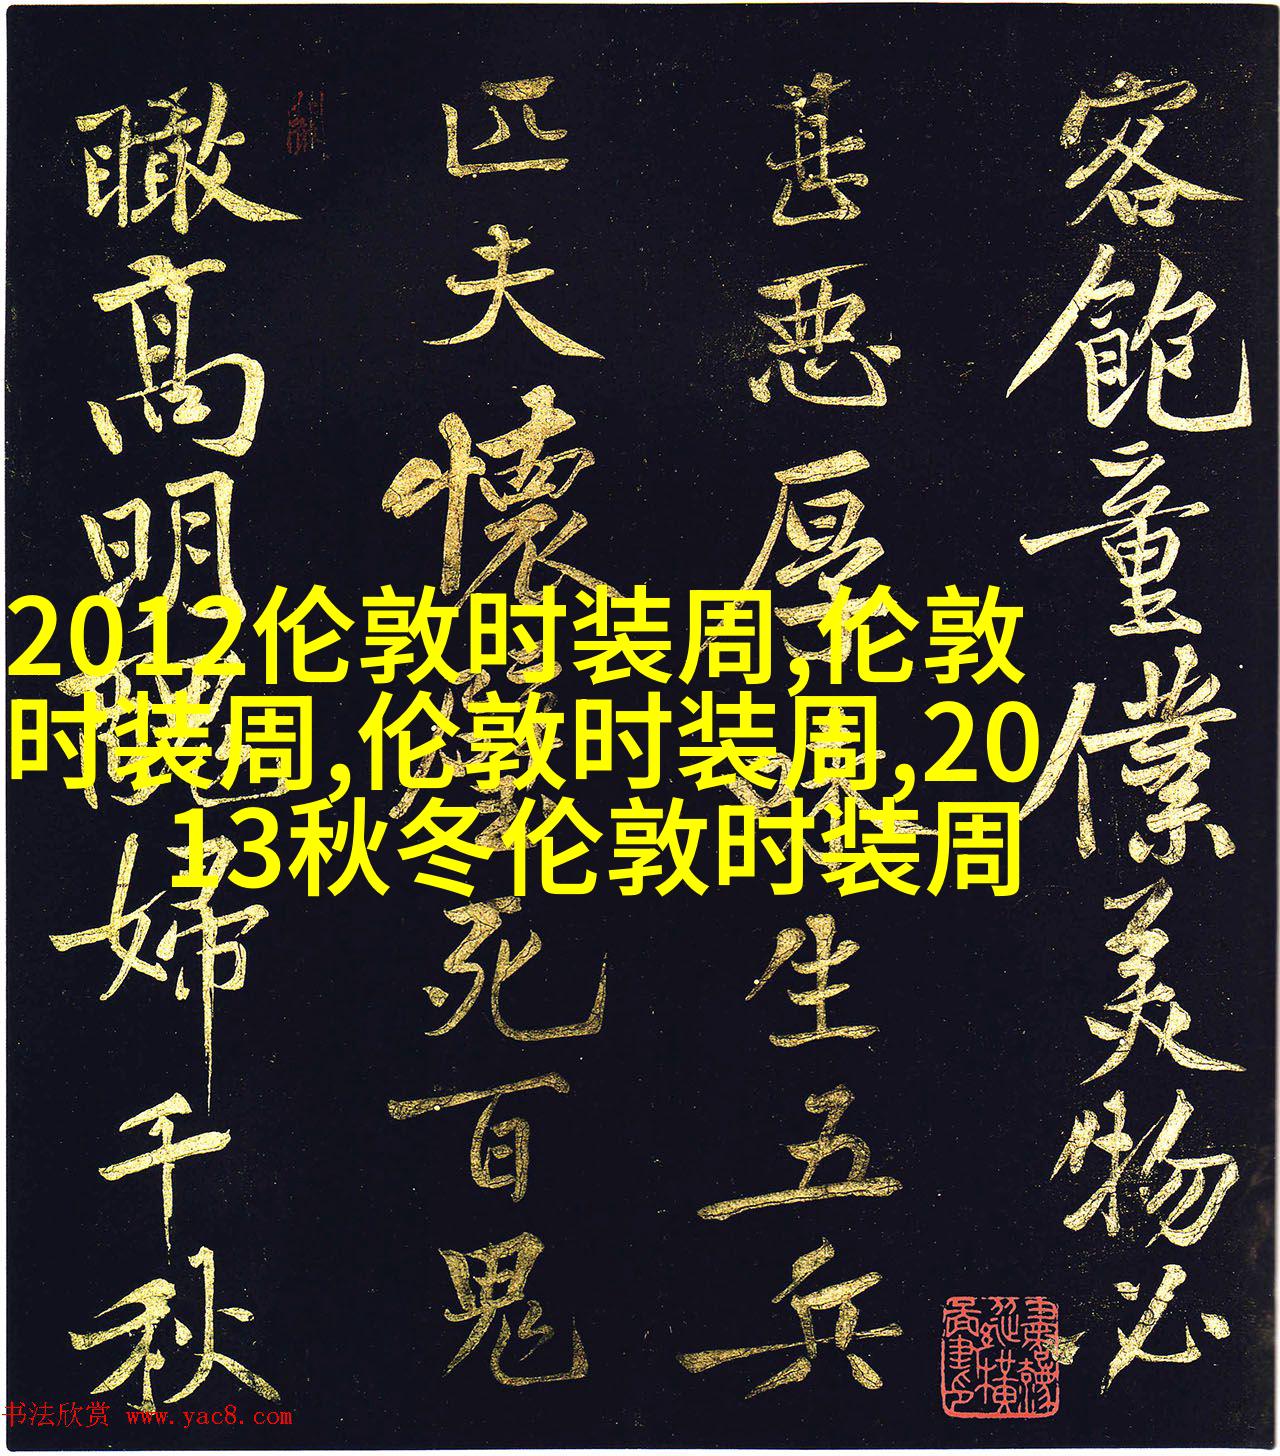 客飽童僕美物必
甚悪厚味生五兵
匹夫懷璧死百鬼
瞰髙明醜婦千秋
2012伦敦时装周,伦敦
时装周,伦敦时装周,20
13秋冬伦敦时装周
书法欣赏 www.yac8.com